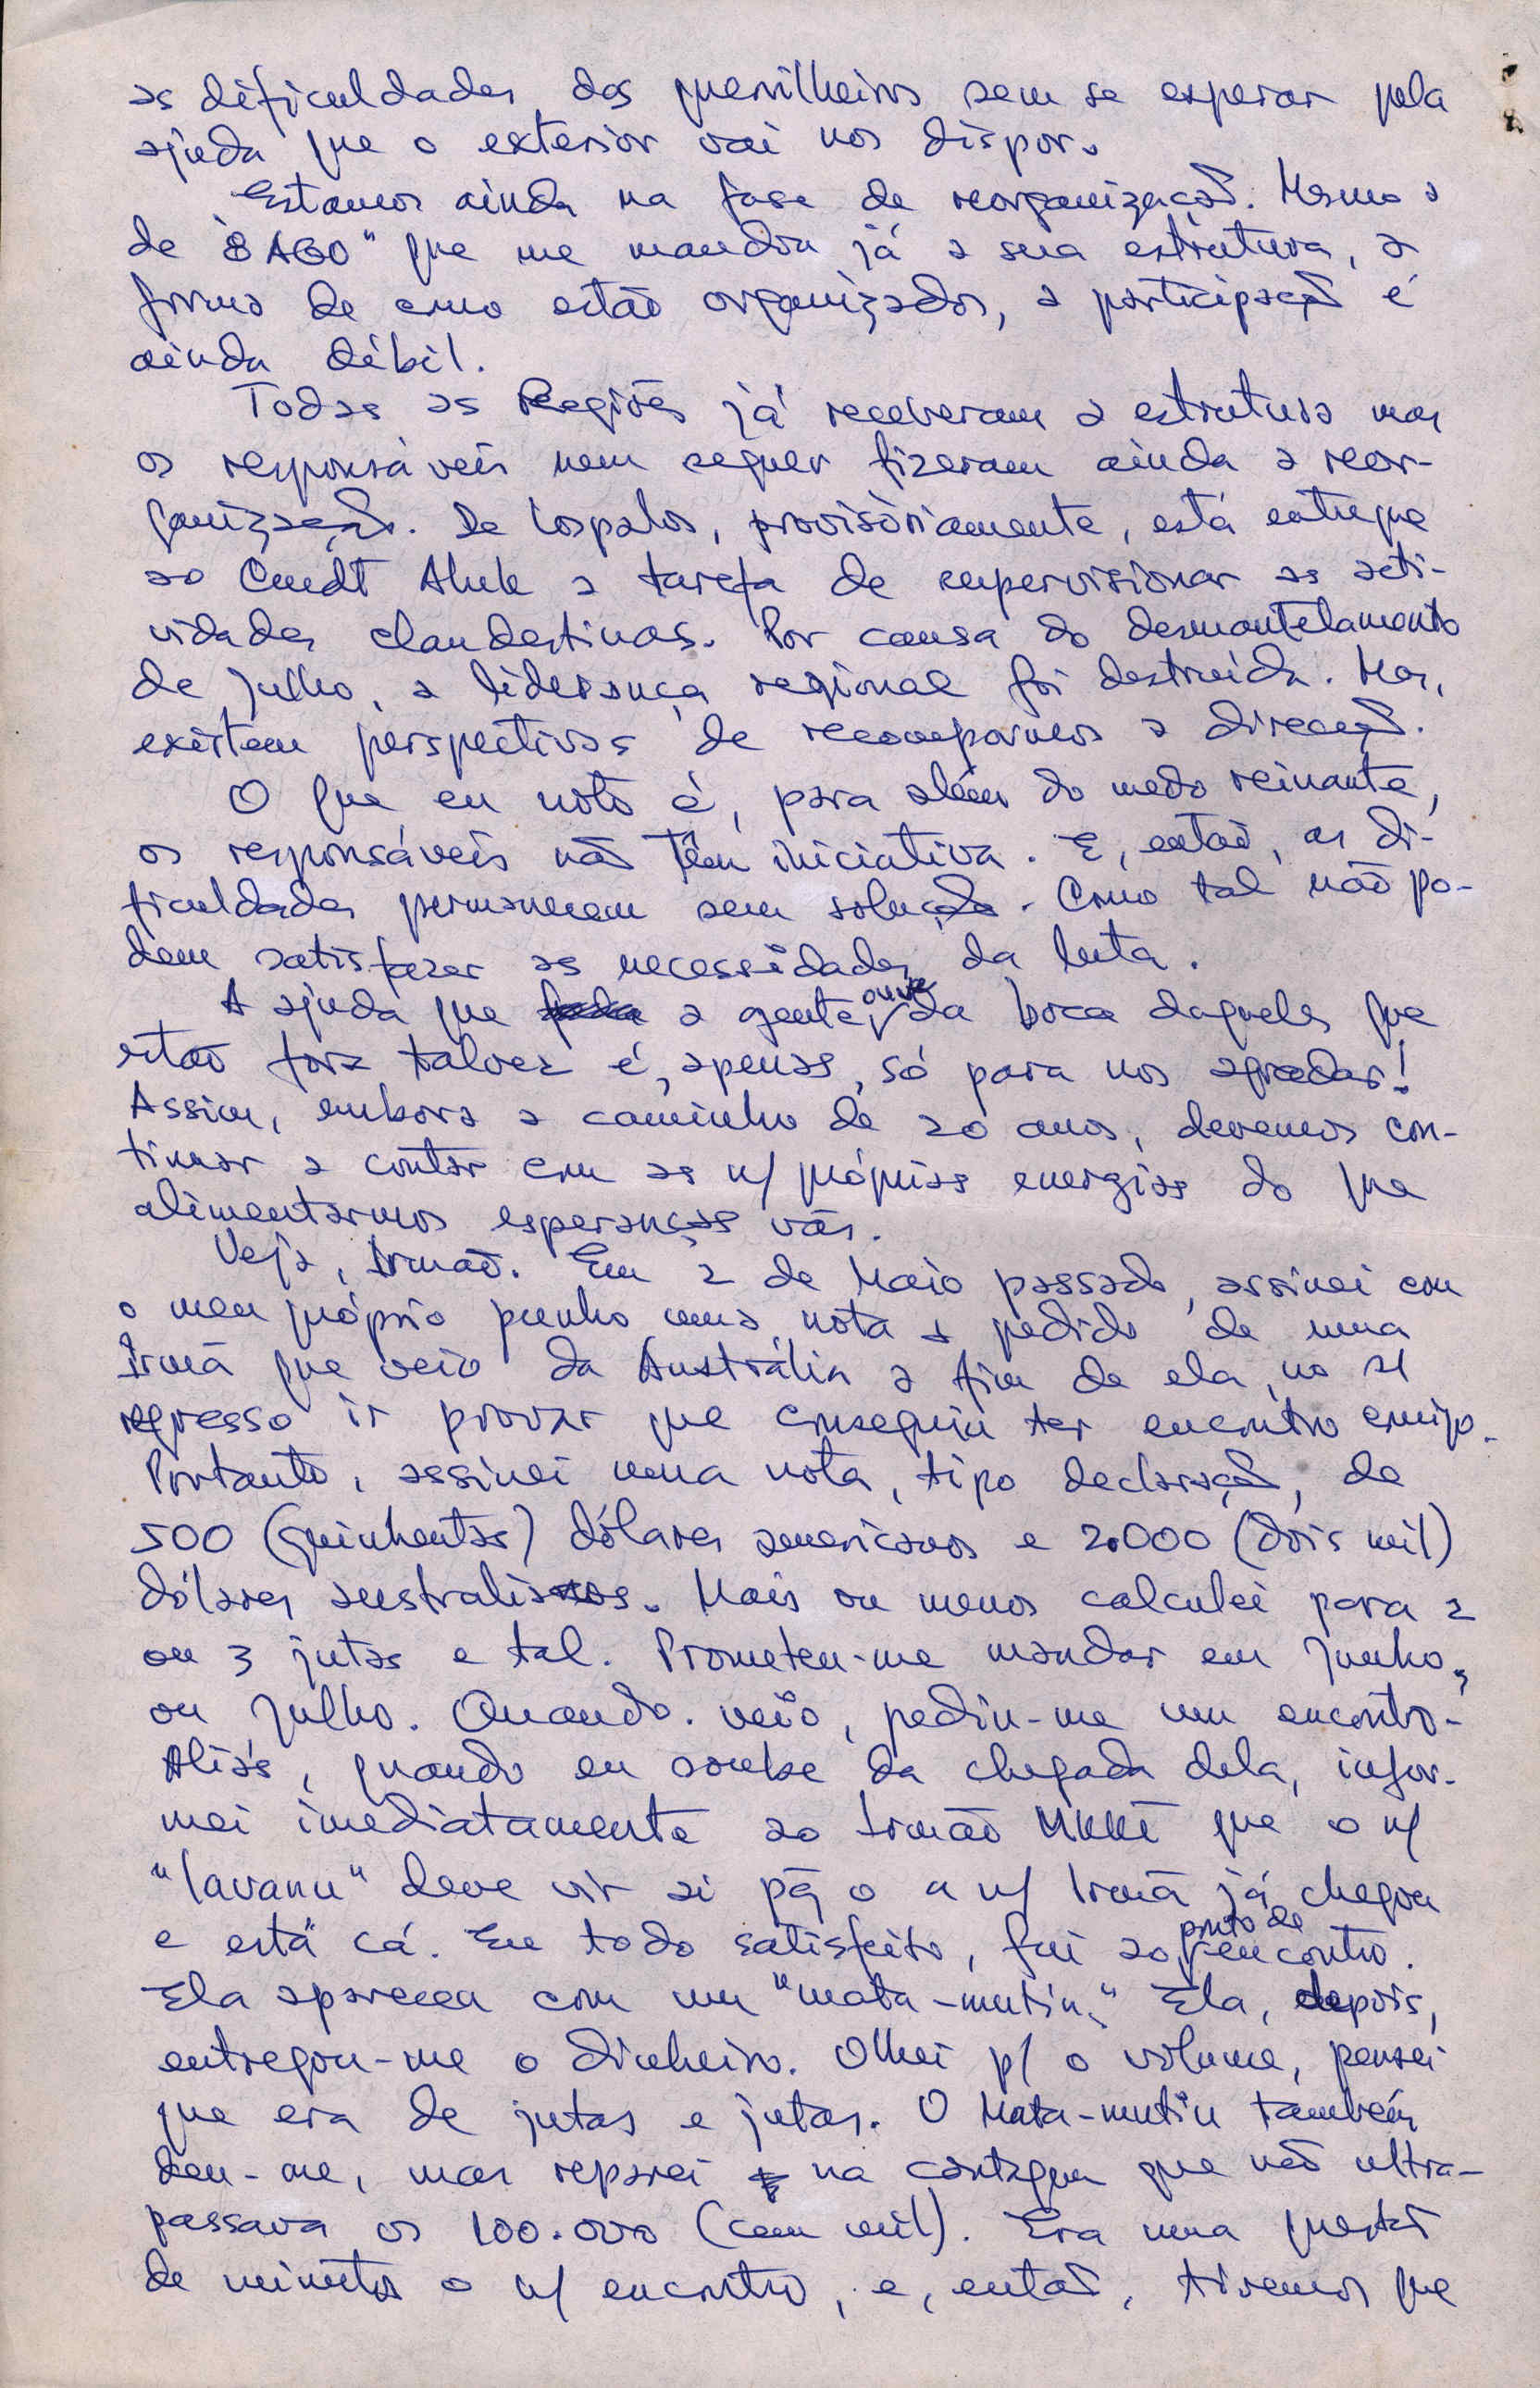 as dificuldades dos guerrilheiros sem se esperar pela
ajuda que o exterior vai nos dispor.
Estamos ainda na fase de reorganização. Mesmo a
de "8 AGO" que me mandou já a sua estrutura, a
forma de como estão organizados, a participação é
ainda débil.
Todas as Regiões já receberam a estrutura mas
os responsáveis nem sequer fizeram ainda a reor-
ganização. De Lospalos, provisòriamente, está entregue
ao Cmdt Aluk a tarefa de supervisionar as acti-
vidades clandestinas. Por causa do desmantelamento
de Julho, a liderança regional foi destruída. Mas,
existem perspectivas de recompormos a direcção.
O que eu noto é, para além do medo reinante,
os responsáveis não têm iniciativa. E, então, as di-
ficuldades permanecem sem solução. Como tal não po-
dem satisfazer as necessidades da luta.
A ajuda que a gente ouve da boca daqueles que
estão fora talvez é, apenas, só para nos agradar!
Assim, embora a caminho de 20 anos, devemos con-
tinuar a contar com as n/ próprias energias do que
alimentarmos esperanças vãs.
Veja, Irmão. Em 2 de Maio passado, assinei com
o meu próprio punho uma nota a pedido de uma
Irmã que veio da Austrália a fim de ela, no s/
regresso ir provar que conseguiu ter encontro comigo.
Portanto, assinei uma nota, tipo declaração, de
500 (quinhentos) dólares americanos e 2.000 (dois mil)
dólares australianos. Mais ou menos calculei para 2
ou 3 jutas e tal. Prometeu-me mandar em Junho,
ou Julho. Quando veio, pediu-me um encontro.
Aliás, quando eu soube da chegada dela, infor-
mei imediatamente ao Irmão que o n/
"lavanu" deve vir aí pq o a n/ Irmã já chegou
e está cá. Eu todo satisfeito, fui ao ponto de encontro.
Ela apareceu com um "mata-mutin". Ela, depois,
entregou-me o dinheiro. Olhei p/ o volume, pensei
que era de jutas e jutas. O Mata-mutin também
deu-me, mas reparei na contagem que não ultra-
passava os 100.000 (cem mil). Era uma questão
de minutos o n/ encontro, e, então, tivemos que